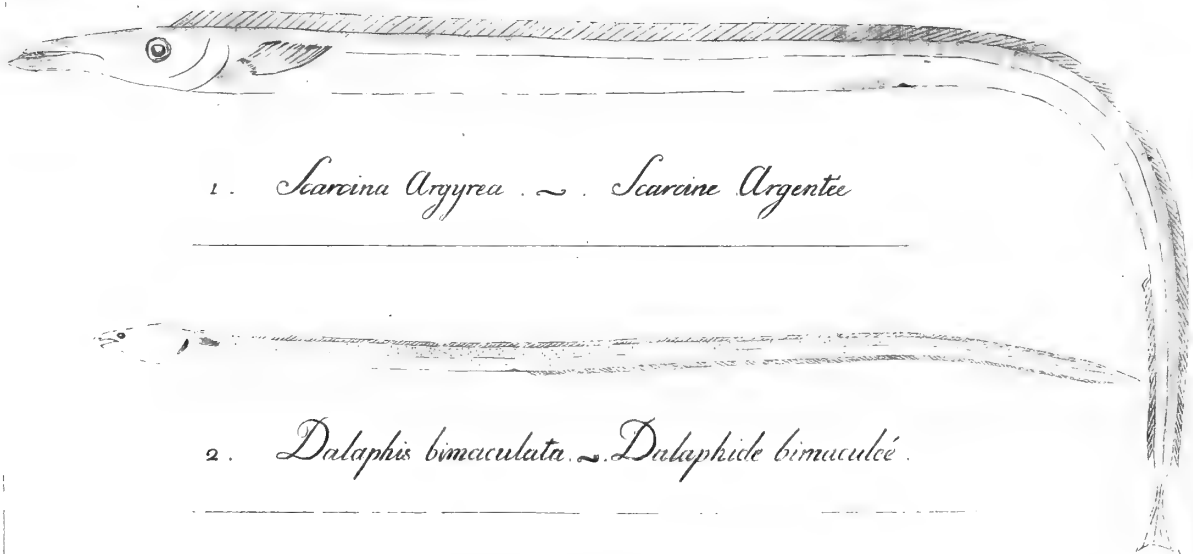 1. Scarcina Argyrea. ~. Scarcine Argentée
2. Dalaphis bimaculata. ~. Dalaphide bimaculcé.